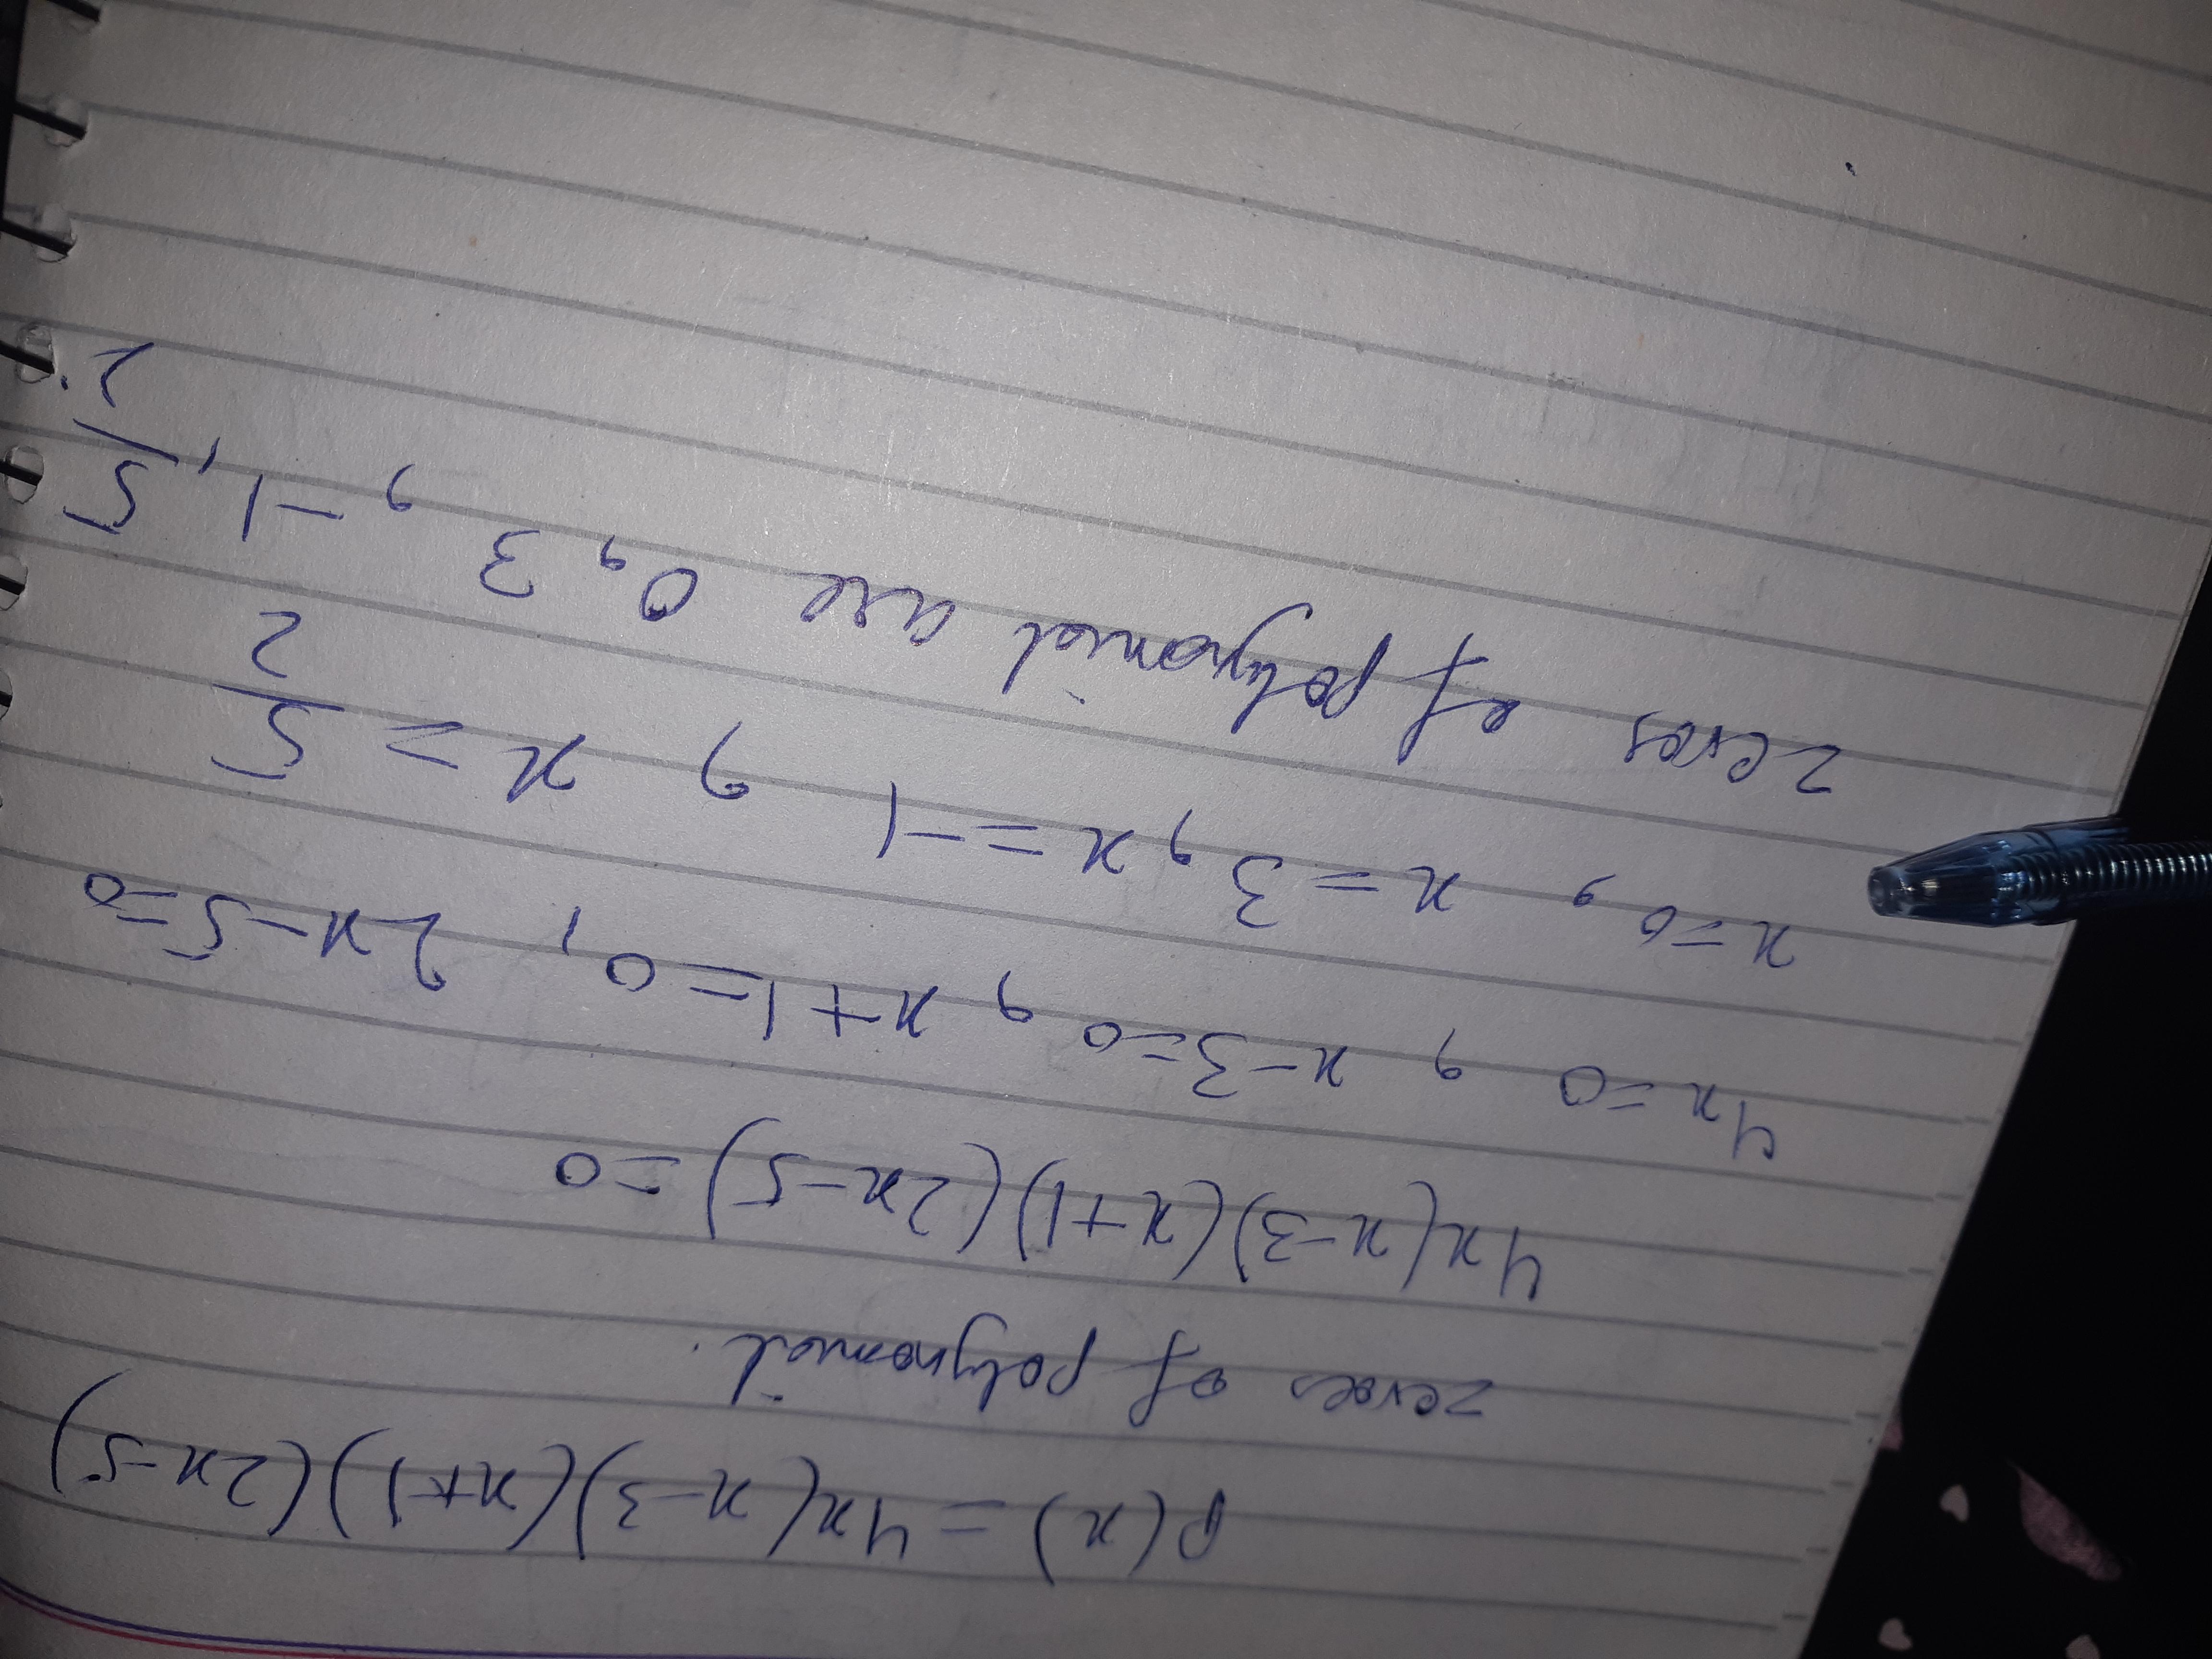 P(x) = 4x(x-3)(x+1)(2x-5)
zeroes of polynomial.
4x(x-3)(x+1)(2x-5)=0
4x=0 , x-3=0 , x+1=0, 2x-5=0
x=0, x=3, x=-1 , x=5/2
zeroes of polynomial are 0, 3 , -1, 5/2.